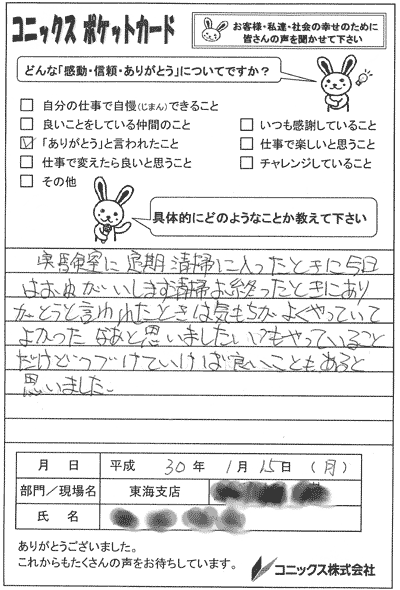 コニックス ポケットカード
お客様・私達・社会の幸せのために
皆さんの声を聞かせて下さい
どんな「感動・信頼・ありがとう」についてですか？
自分の仕事で自慢(じまん)できること
良いことをしている仲間のこと
いつも感謝していること
「ありがとう」と言われたこと
仕事で楽しいと思うこと
仕事で変えたら良いと思うこと
チャレンジしていること
その他
具体的にどのようなことか教えて下さい
実験室に定期清掃に入ったときに今日
はおねがいします清掃お終ったときにあり
がとうと言われたときは気もちがよくやっていて
よかったなあと思いましたいつもやっていること
だけどつづけていけば良いこともあると
思いました。
月 日 平成 30年 1月 15日 (月)
部門／現場名 東海支店
氏 名
ありがとうございました。
これからもたくさんの声をお待ちしています。
コニックス株式会社